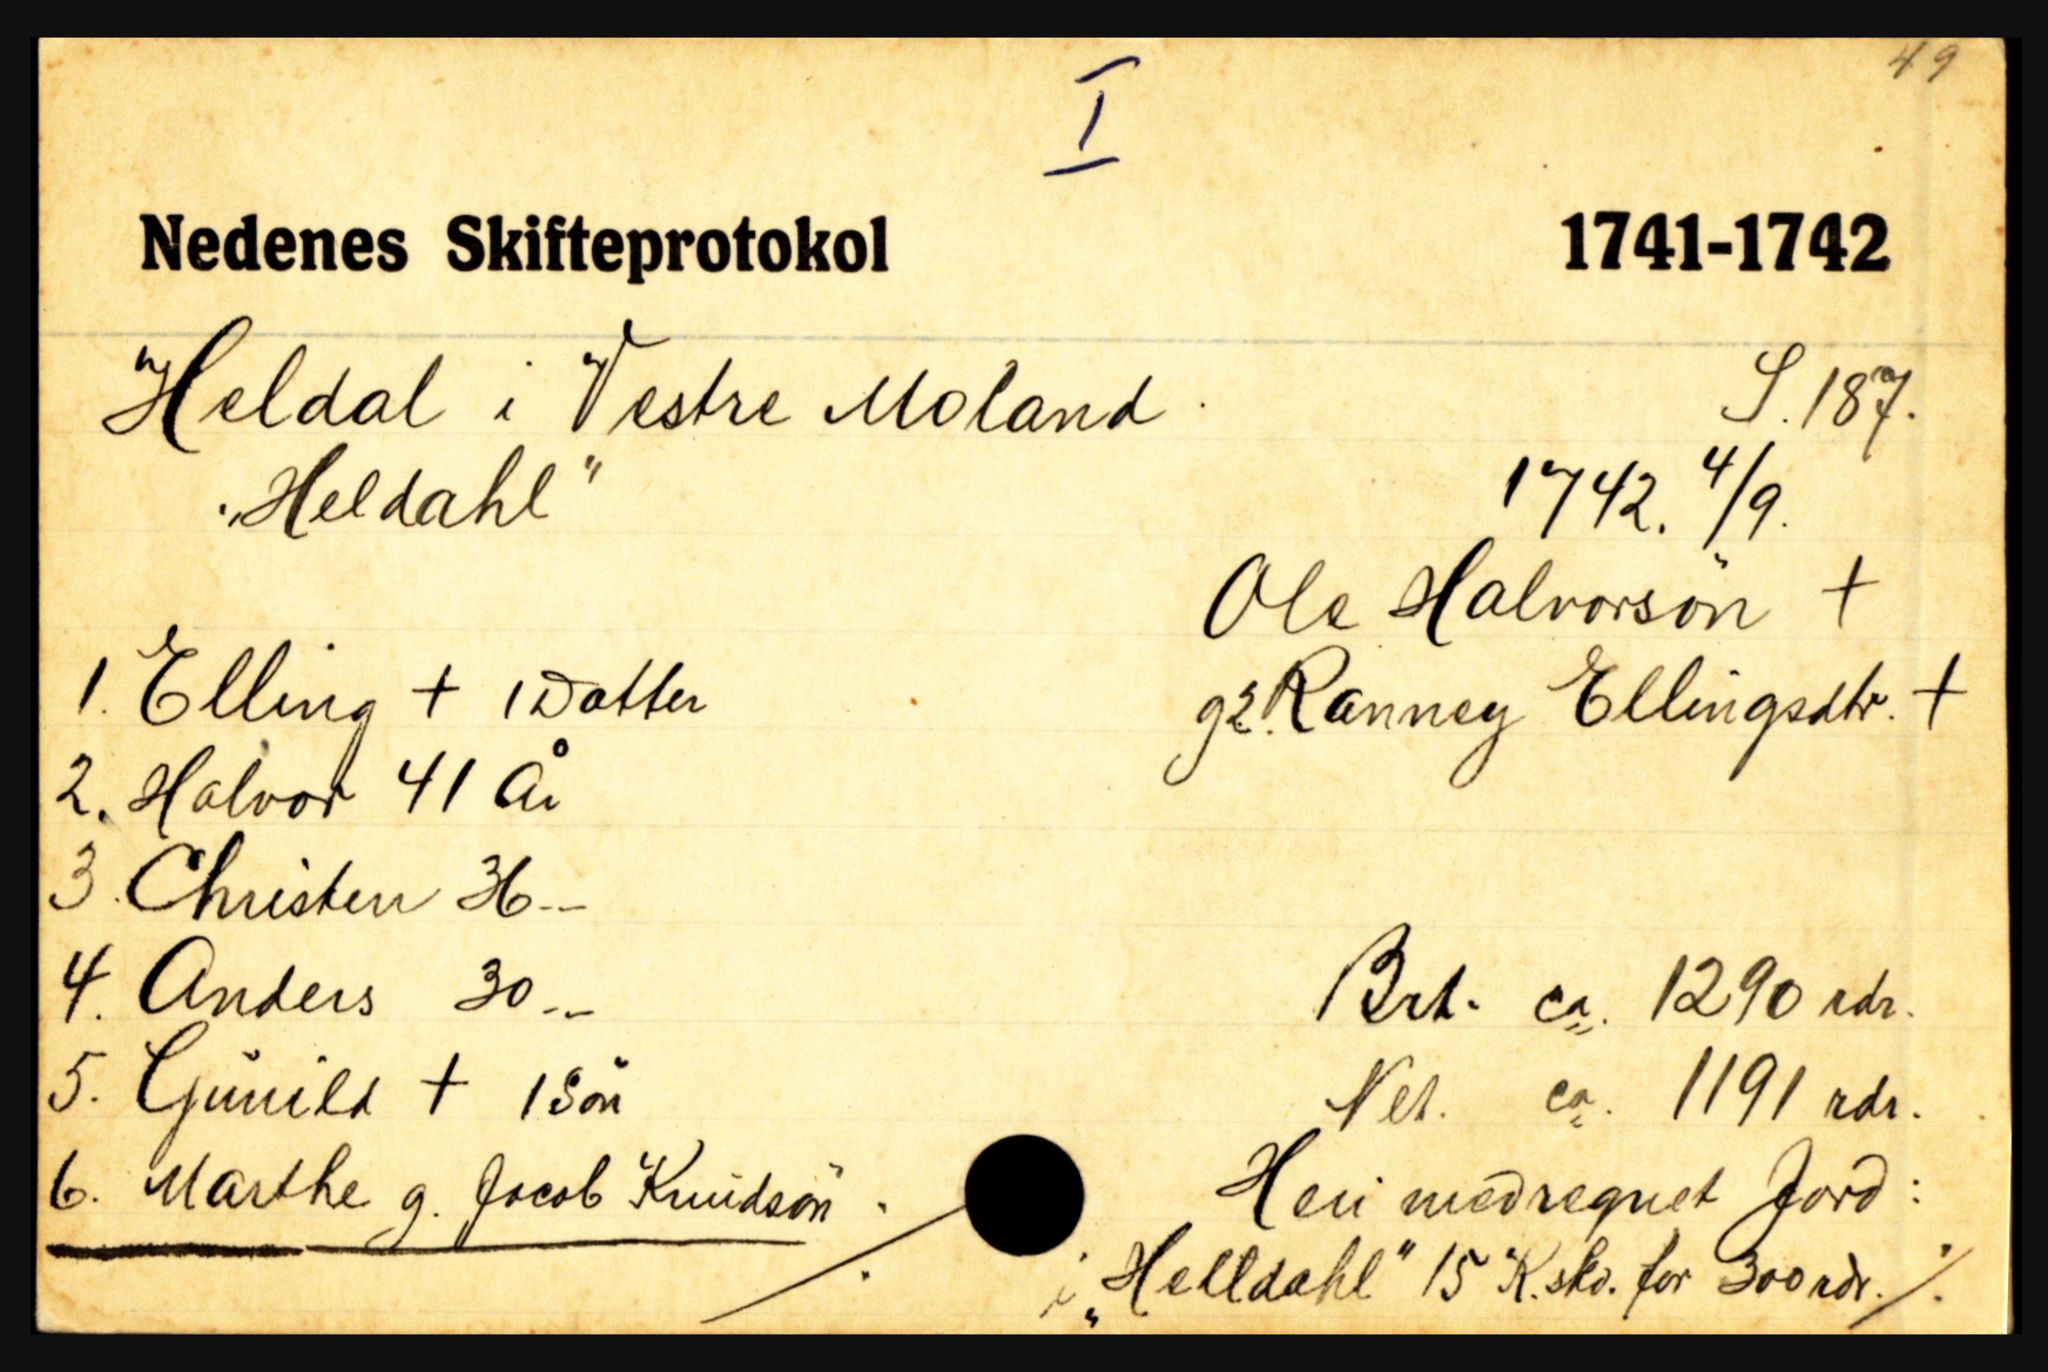 49
I
Nedenes Skifteprotokol 1741-1742
Heldal i Vestre Moland. S. 187.
„Heldahl" 1742. 4/9.
Ole Halvorsön +
g2. Ranney Ellingsdtr. +
1. Elling + 1 Datter
2. Halvor 41 År
3. Christen 36 --
4. Anders 30 --
5. Gunild + 1 Sön
6. Marthe g. Jacob Knudsön.
Brt. ca. 1290 rdr.
Net. ca. 1191 rdr.
Heri medregnet Jord:
i „Helldahl" 15 K.skd. for 300 rdr. ./.